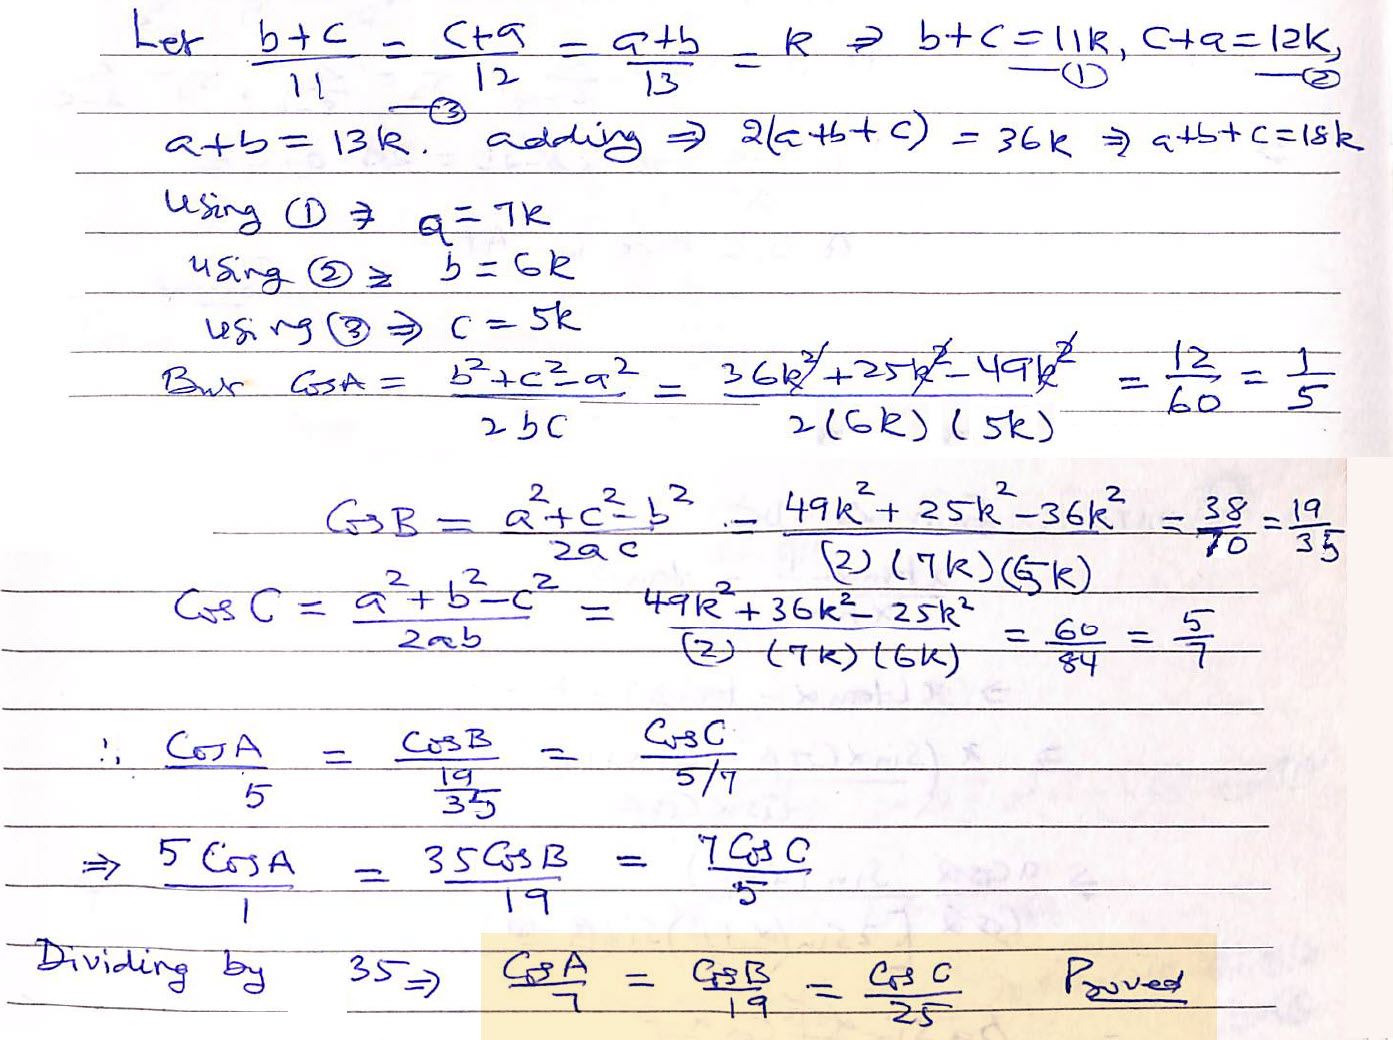 Let (b+c)/11 = (c+a)/12 = (a+b)/13 = k ⇒ b+c = 11k, —① c+a = 12k, —②
a+b = 13k. —③ adding ⇒ 2(a+b+c) = 36k ⇒ a+b+c = 18k
using ① ⇒ a = 7k
using ② ⇒ b = 6k
using ③ ⇒ c = 5k
But CosA = (b²+c²-a²)/(2bc) = (36k²+25k²-49k²)/(2(6k)(5k)) = 12/60 = 1/5
CosB = (a²+c²-b²)/(2ac) = (49k²+25k²-36k²)/((2)(7k)(5k)) = 38/70 = 19/35
Cos C = (a²+b²-c²)/(2ab) = (49k²+36k²-25k²)/((2)(7k)(6k)) = 60/84 = 5/7
∴ CosA/5 = CosB/(19/35) = CosC/(5/7)
⇒ 5CosA/1 = 35CosB/19 = 7CosC/5
Dividing by 35 ⇒ CosA/7 = CosB/19 = CosC/25 Proved